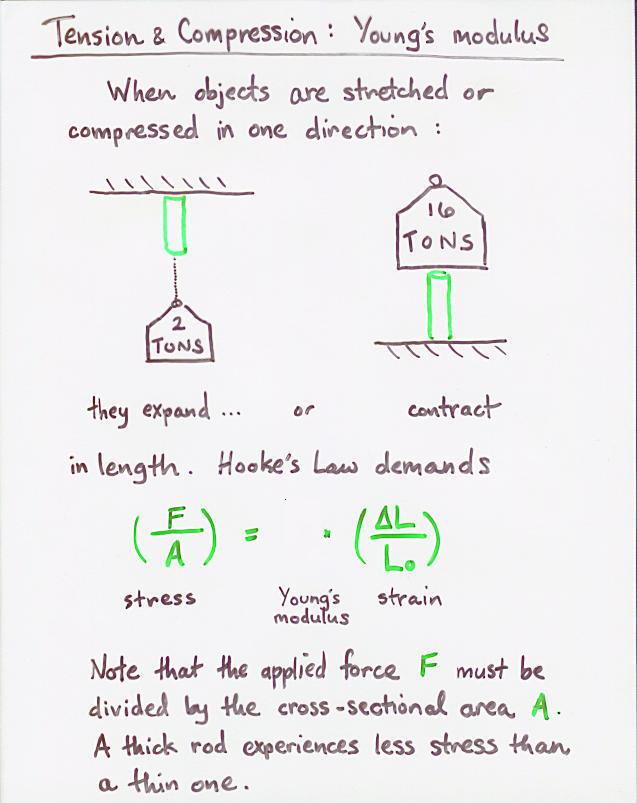 Tension & Compression: Young's modulus
When objects are stretched or
compressed in one direction:
16
TONS
2
TONS
they expand ... or contract
in length. Hooke's Law demands
(F/A) = · (ΔL/L₀)
stress Young's modulus strain
Note that the applied force F must be
divided by the cross-sectional area A.
A thick rod experiences less stress than
a thin one.